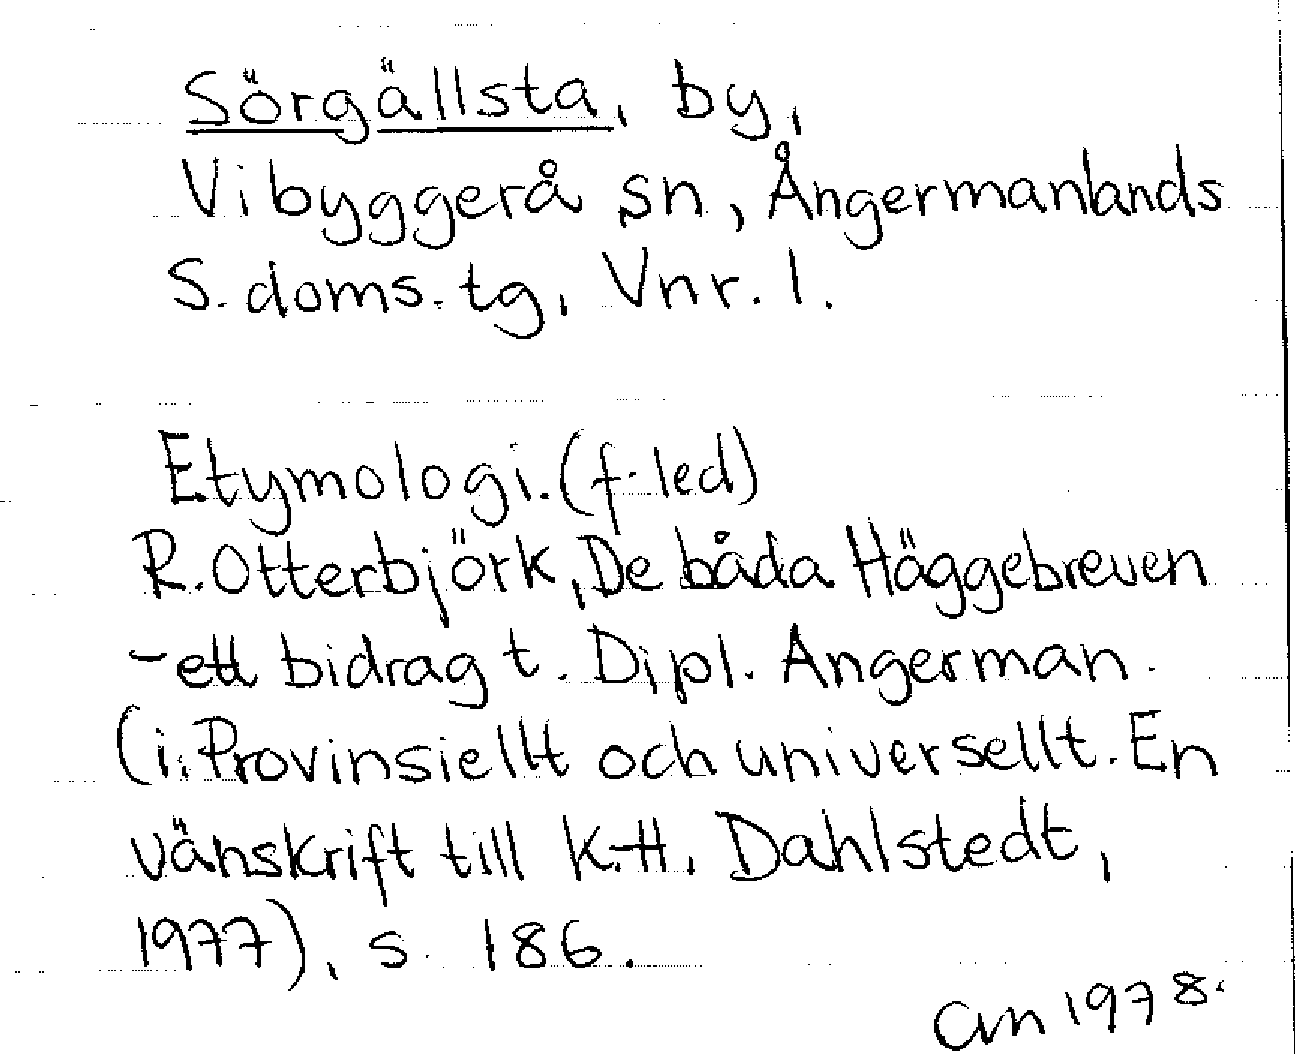 Sörgällsta, by,
Vibyggerå sn, Ångermanlands
S. doms. tg, Vnr. 1.
Etymologi. (f-led)
R. Otterbjörk, De båda Häggebreven
- ett bidrag t. Dipl. Angerman.
(i: Provinsiellt och universellt. En
vänskrift till K.-H. Dahlstedt,
1977), s. 186.
am 1978.